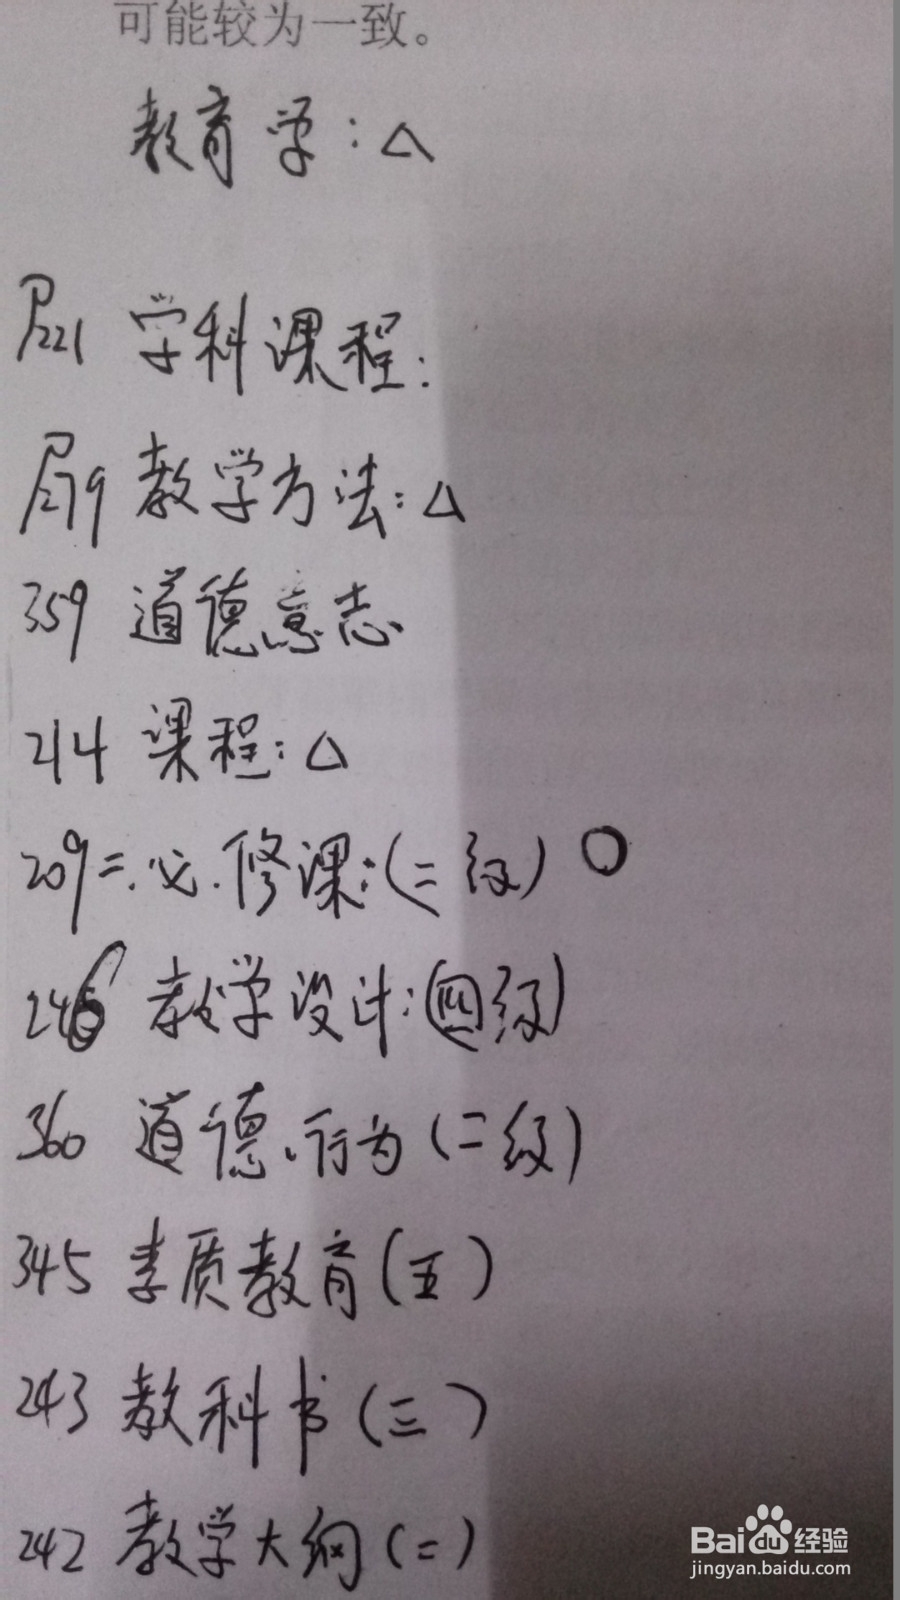 可能较为一致。
教育学：△
P221 学科课程：
P279 教学方法：△
359 道德意志
214 课程：△
209 = 必修课：(二级) O
246 教学设计：(四级)
360 道德、行为 (二级)
345 素质教育 (五)
243 教科书 (三)
242 教学大纲 (二)
Baidu经验
jingyan.baidu.com